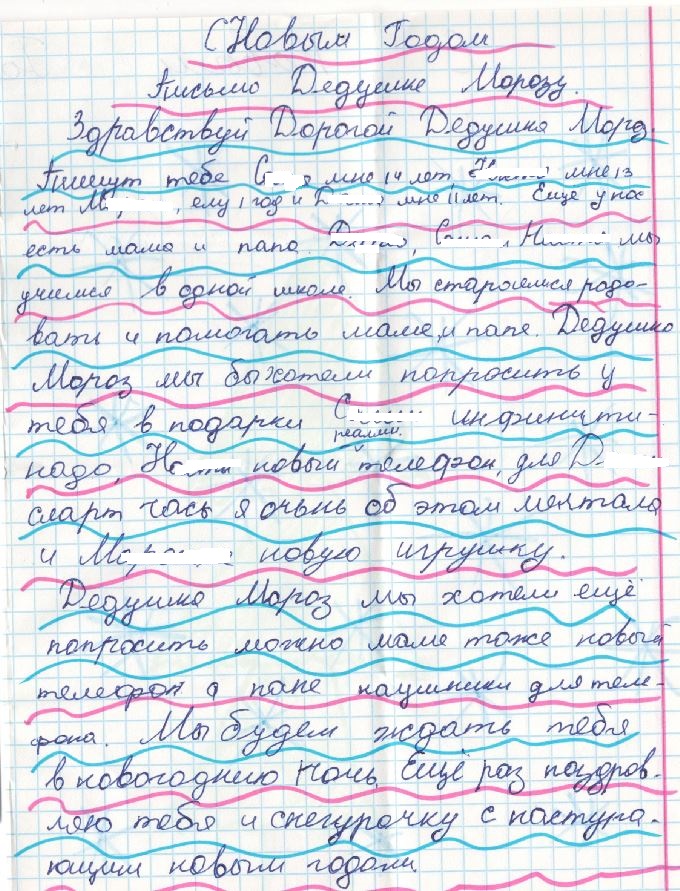 С Новым Годом
Письмо Дедушке Морозу.
Здравствуй Дорогой Дедушка Мороз.
Пишут тебе С я мне 14 лет, мне 13
лет М, ему 1 год и Д мне 11 лет. Еще у нас
есть мама и папа. Д, С, Н мы
учимся в одной школе. Мы стараемся радо-
вать и помогать маме, и папе. Дедушка
Мороз мы бы хотели попросить у
тебя в подарки С инфинити-
реалми.
надо, Н новый телефон, для Д
смарт часы я очень об этом мечтала
и М новую игрушку.
Дедушка Мороз мы хотели ещё
попросить можно маме тоже новый
телефон а папе наушники для теле-
фона. Мы будем ждать тебя
в новогоднию ночь. Ещё раз поздров-
ляю тебя и снегурочку с наступа-
ющим новым годом.